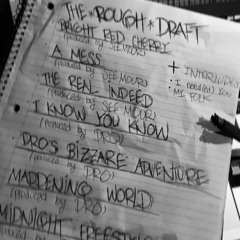 THE * ROUGH * DRAFT
BRIGHT RED CHERRY
(produced by SEEMOOR)
A MESS
(produced by SEE MOOR)
THE REAL INDEED
(produced by SEE MOOR)
I KNOW YOU KNOW
(produced by DRO)
DRO'S BIZZARE ADVENTURE
(produced by DRO)
MADDENING WORLD
(produced by DRO)
MIDNIGHT FREESTYLE
+ INTERLUDES
: I NEED YOU
: MI FOLK